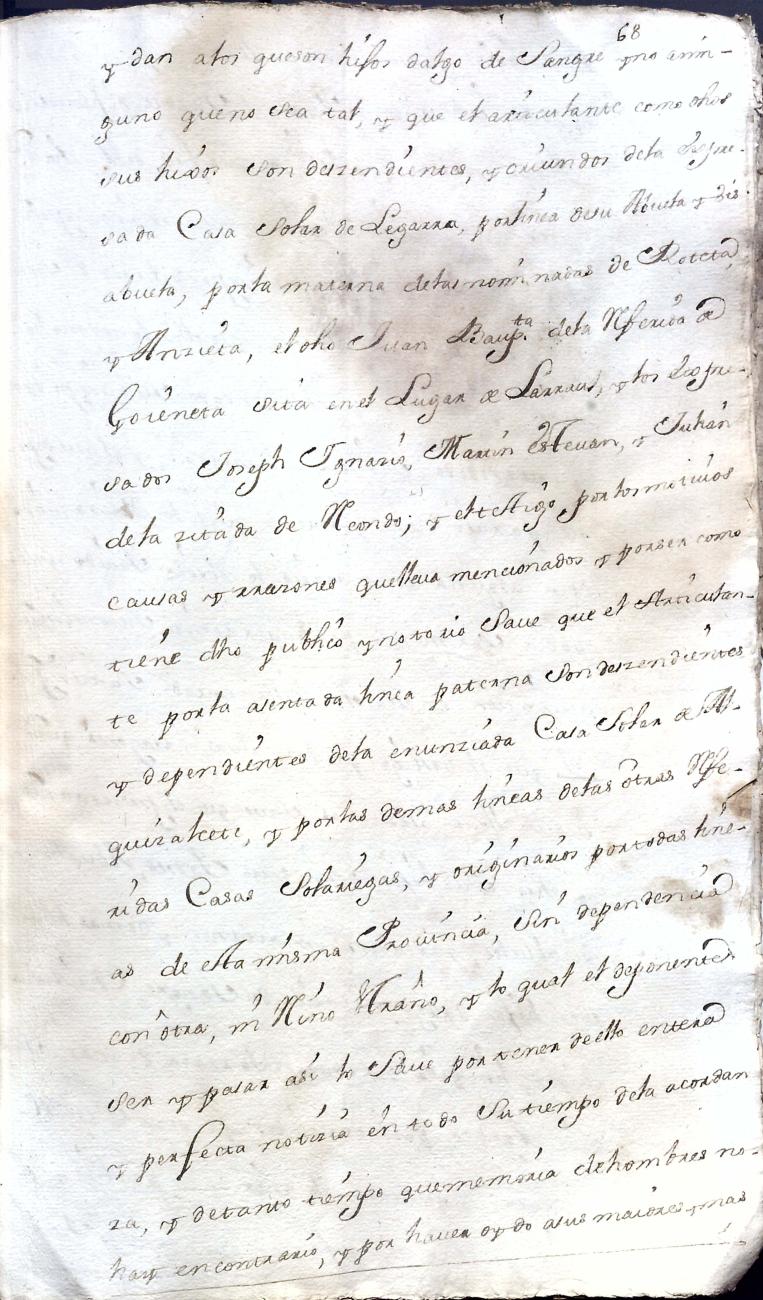 68
y dan a los que son hijos dalgo de Sangre y no anin-
guno que no sea tal, y que el articulante como dhos
sus hixos son deszendientes, y oriundos de la Expre-
sada Casa Solar de Legarra, por linea de su Abuela y bis
abuela, por la materna de las nominadas de Roteta
y Anzieta, el dho Juan Baup.ta de la Referida de
Goieneta sita en el Lugar de Larraul, y los Expre-
sados Joseph Ygnazio, Martin Estevan, y Julian
de la zitada de Recondo; y el testigo por los motivos
causas y rrazones que lleva mencionados y por ser como
tiene dho publico y notorio Save que el Articulan-
te por la asentada linea paterna son deszendientes
y dependientes de la enunziada Casa Solar de
guizalete, y por las demas lineas de las otras Refe-
ridas Casas Solariegas, y originarios por todas line-
as de esta misma Provincia, sin dependencia
con otra, ni Reino estraño, y lo qual el deponente
ser y pasar asi lo Save por tener de ello entera
y perfecta notizia en todo su tiempo de la acordan
za, y de tanto tiempo que memoria de hombres no
hay en contrario, y por haver oydo a sus maiores y mas